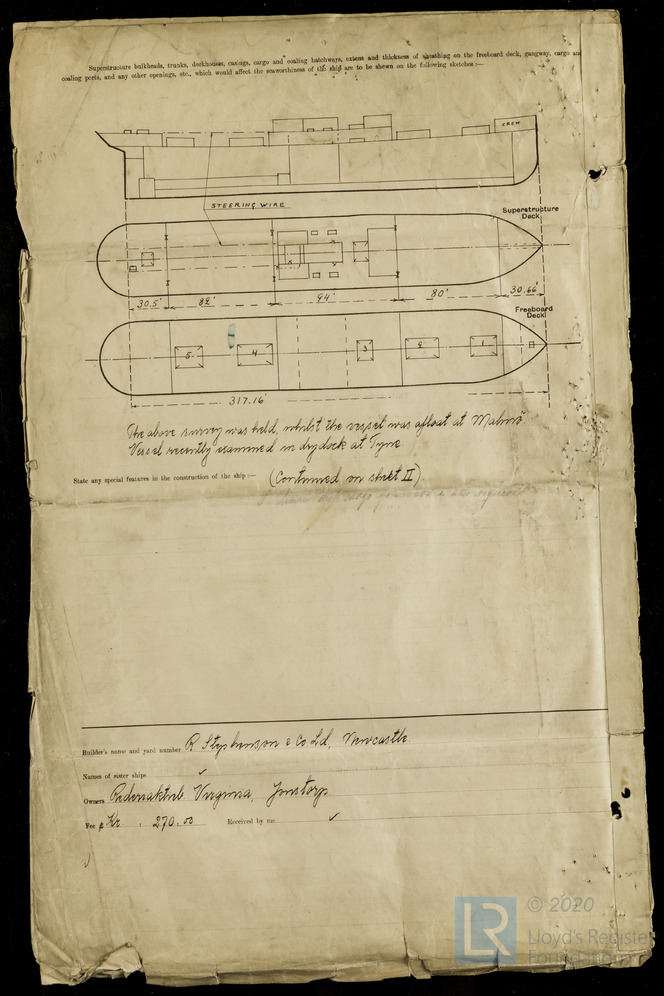 Superstructure bulkheads, trunks, deckhouses, casings, cargo and coaling hatchways, extent and thickness of sheathing on the freeboard deck, gangway, cargo and
coaling ports, and any other openings, etc., which would affect the seaworthiness of the ship are to be shewn on the following sketches:—
CREW
STEERING WIRE
Superstructure
Deck
30.5' 82' 94' 80' 30.66'
Freeboard
Deck
5 4 3 2 1
317.16'
The above survey was held, whilst the vessel was afloat at Malmö
Vessel recently examined in drydock at Tyne
State any special features in the construction of the ship:— (Continued on sheet II).
Builder's name and yard number R Stephenson & Co Ld, Newcastle
Names of sister ships
Owners Rederiaktieb Virginia, Jonstorp
Fee Kr : 270.00 Received by me
LR
© 2020
Lloyd's Register
Foundation